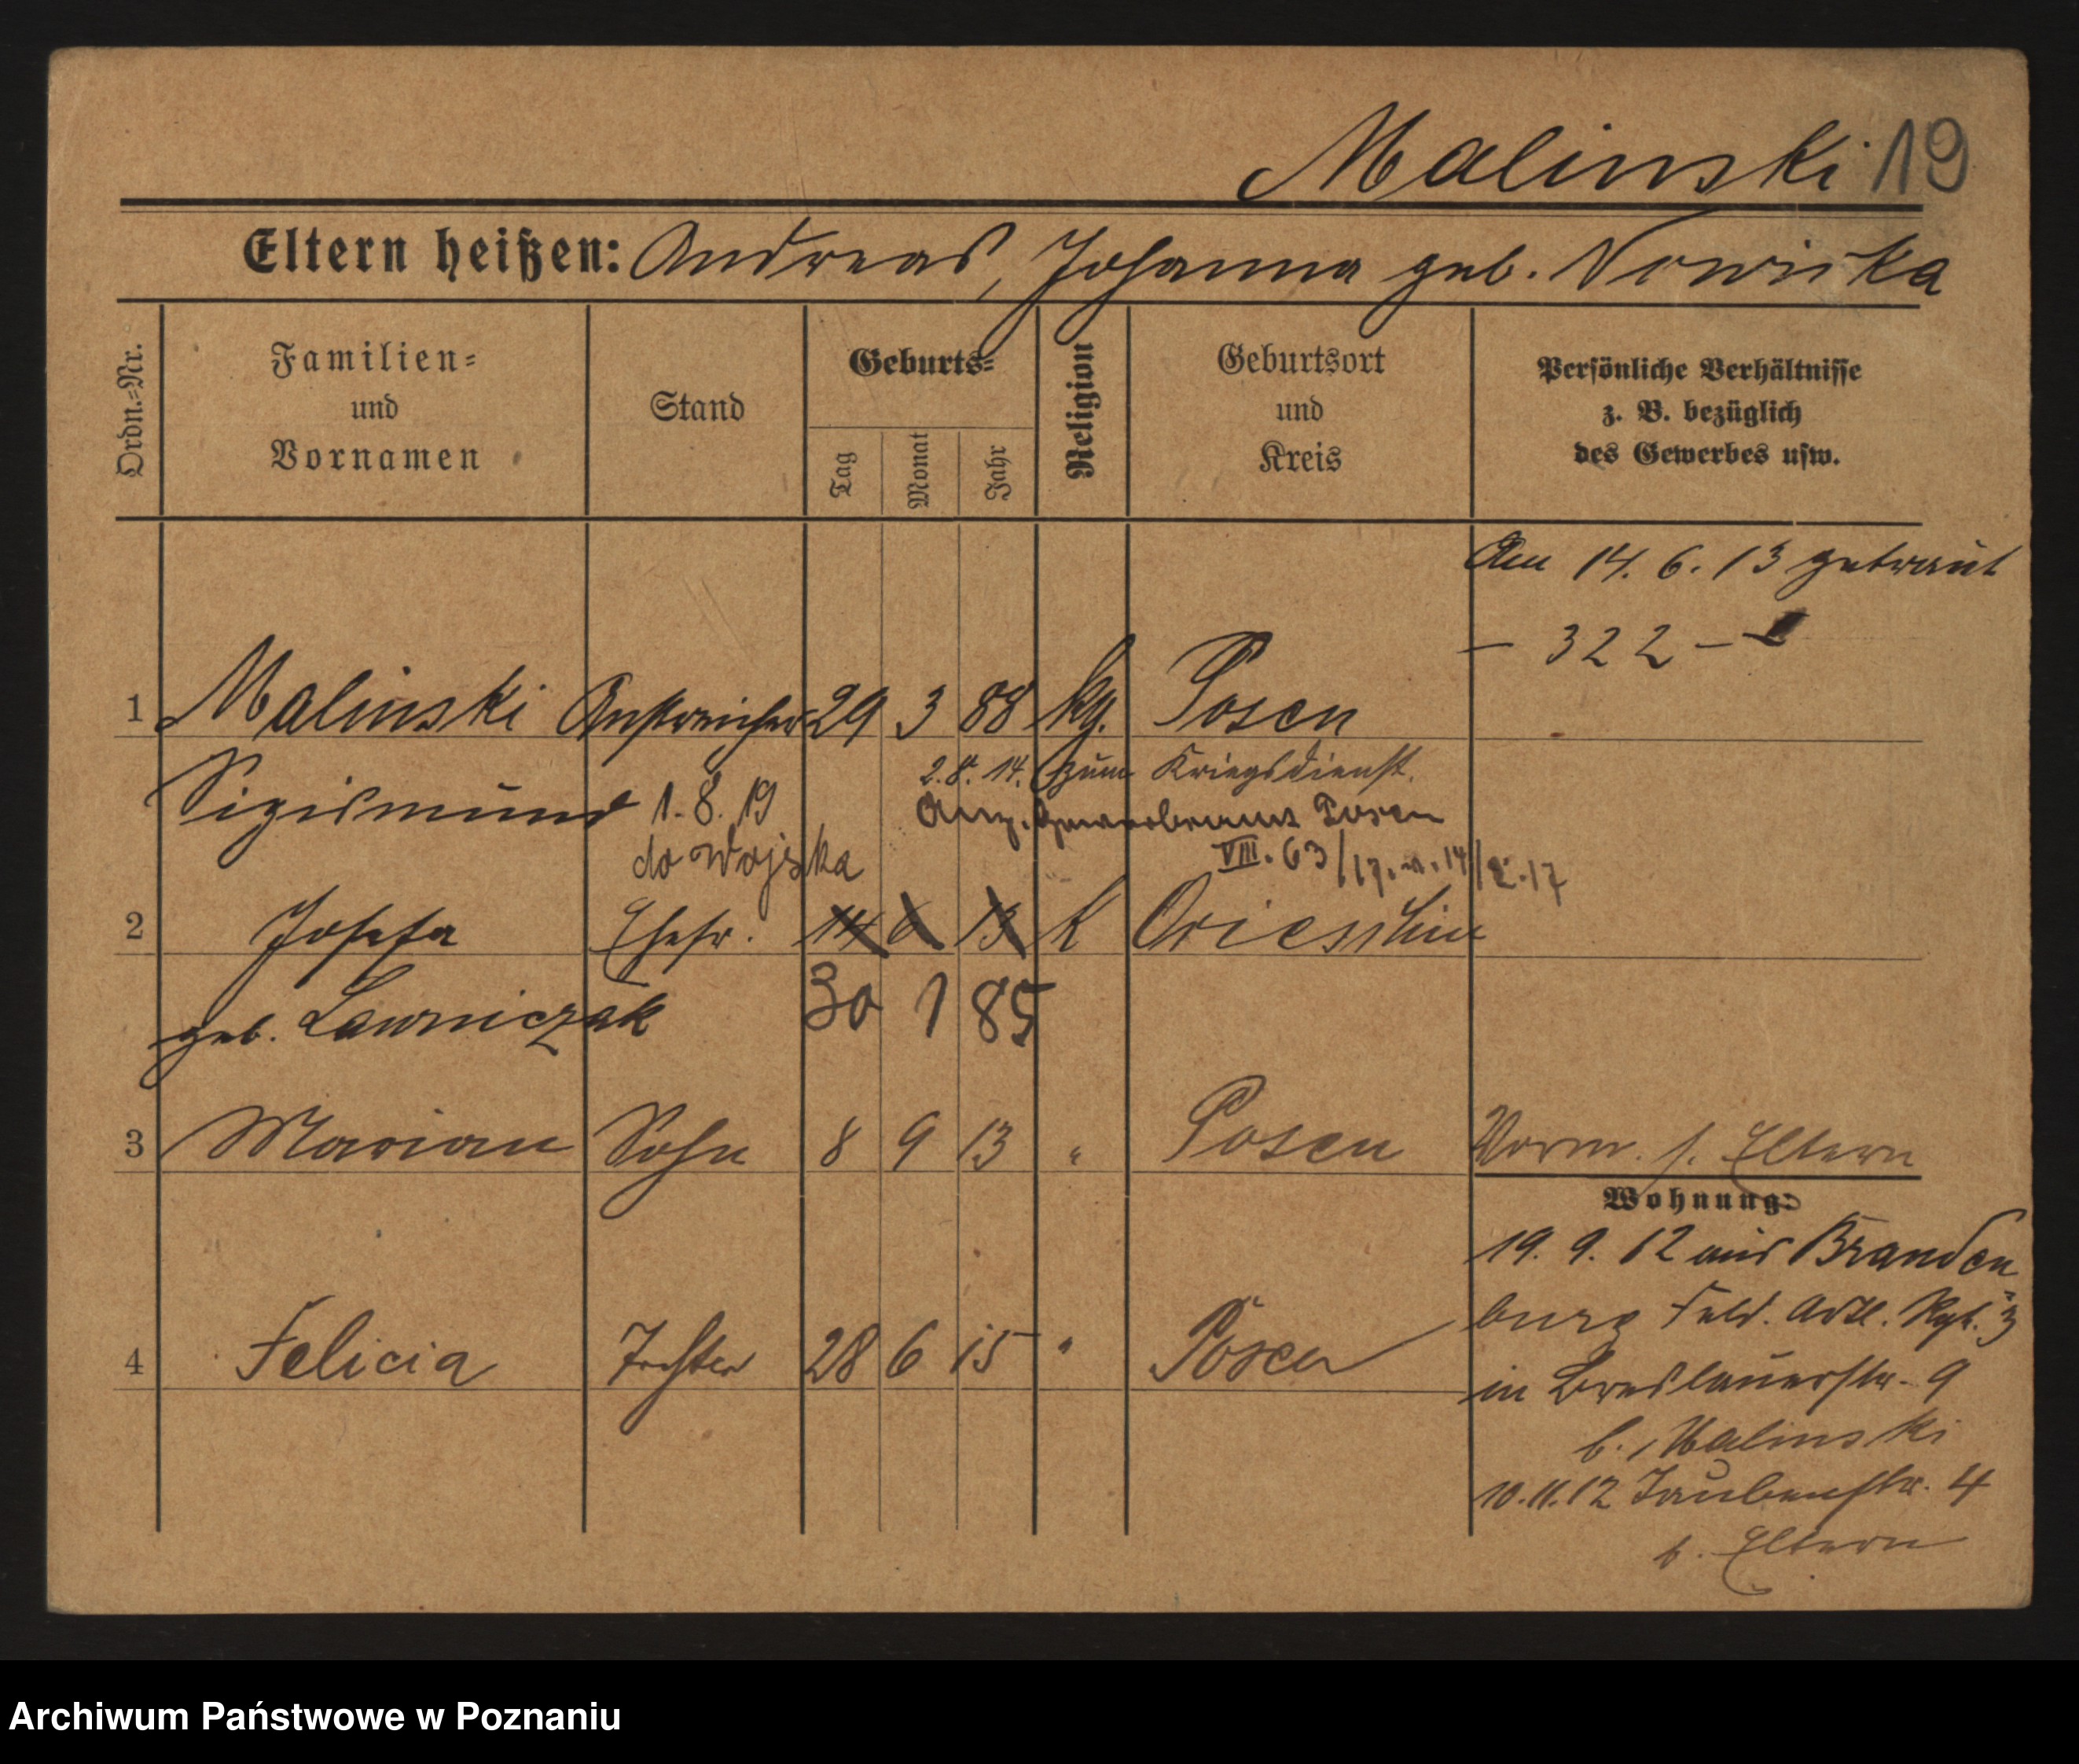 Malinski 19
Eltern heißen: Andreas, Johanna geb. Nowicka
Ordn.-Nr.
Familien-
und
Vornamen
Stand
Geburts-
Tag
Monat
Jahr
Religion
Geburtsort
und
Kreis
Persönliche Verhältnisse
z. B. bezüglich
des Gewerbes usw.
Am 14. 6. 13 getraut
– 322 –
1 Malinski Anstreicher 29 3 88 kg. Posen
2. 8. 14. zum Kriegsdienst.
Sigismund 1. 8. 19
do Wojska
Posen
VIII. 63
2 Josefa Ehefr. 14 6 13 K
geb. Lawniczak 30 1 85
3 Marian Sohn 8 9 13 " Posen Vorm. s. Eltern
Wohnung:
19. 9. 12 aus Branden
burg Feld. Artl. Rgt. 3
4 Felicia Tochter 28 6 15 " Posen
in Breslauerstr. 9
b. Malinski
10. 11. 12 Taubenstr. 4
b. Eltern
Archiwum Państwowe w Poznaniu